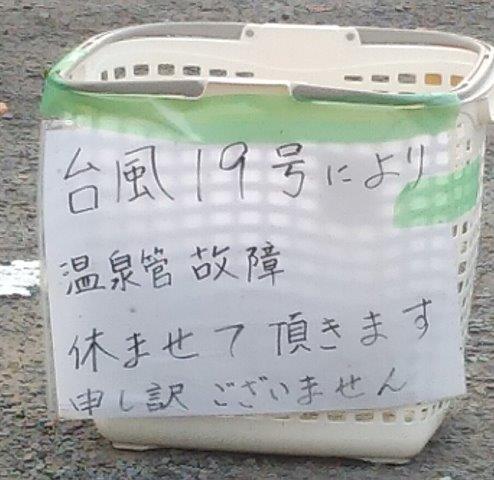 台風19号により
温泉管故障
休ませて頂きます
申し訳ございません